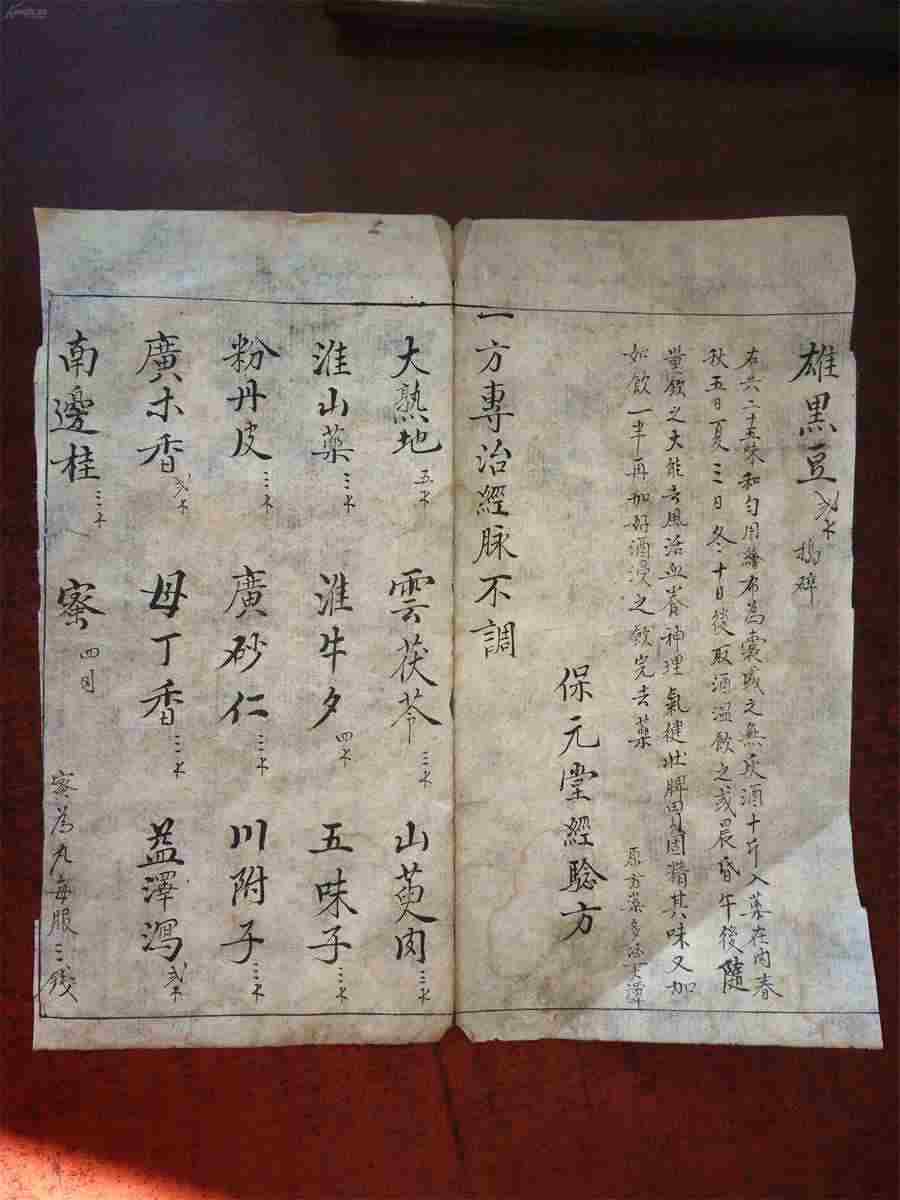 雄黑豆 弍 搗碎
右共二十五味和勻用縫布為囊盛之無灰酒十斤入藥在內春
秋五日夏三日冬十日後取酒溫飲之或晨昏午後隨
量飲之大能去風活血養神理氣健壯脾胃固精其味又加
如飲一半再加好酒浸之飲完去藥
原方藥多
保元堂經驗方
一方專治經脉不調
大熟地 五 雲茯苓 三 山萸肉 三
淮山藥 三 淮牛夕 四 五味子 三
粉丹皮 三 廣砂仁 三 川附子 三
廣木香 弍 母丁香 三 盐澤瀉 弍
南邊桂 三 蜜 四
蜜為丸每服三錢